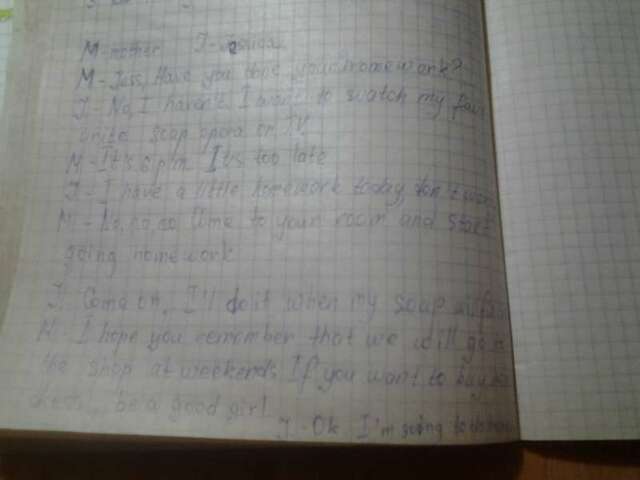 M - mother J - Jessica
M - Jess, Have you done your homework?
J - No, I haven't. I want to watch my fav
orite soap opera on TV
M - It's 6 p.m. It's too late
J - I have a little homework today, don't
M - No, no no time to your room and start
going homework
J. Come on, I'll do it when my soap
M - I hope you remember that we will go
the shop at weekends. If you want to buy
be a good girl
J. - Ok, I'm going to